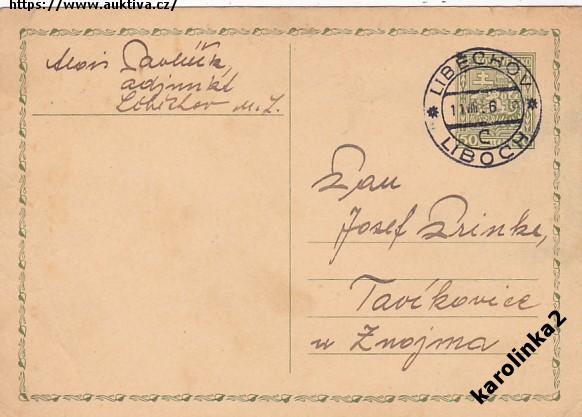 https://www.auktiva.cz/
Alois Pavlíčk,
adjunkt
Liběchov n. L.
LIBĚCHOV
50
C
LIBOCH
Pan
Josef Prinke,
Tavíkovice
u Znojma
karolinka2